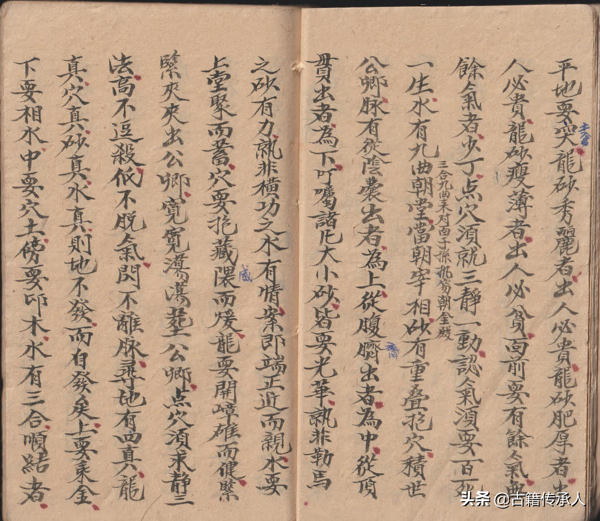 平地要突龍砂秀麗者出人必貴龍砂肥厚者出
人必貴龍砂瘦薄者出人必貧面前要有餘氣無
餘氣者少丁点穴須就三靜一動認氣須要百死
一生水有九曲朝堂當朝宰相砂有重叠抱穴積世
三合九曲來对面子孫執笏朝金殿
公卿脉有從陰囊出者為上從腹臍出者為中從頂
貫出者為下叮囑諸凡大小砂皆要光華孰非勒馬
之砂有力孰非橫功之木有情案即端正近而親水要
上堂聚而蓄穴要抱藏隈而煖龍要開嶂雄而健緊
緊夾夾出公卿寬寬蕩蕩葬公卿点穴須求靜三
法高不逗殺低不脱氣閃不離脉尋地有四真龍
真穴真砂真水真則地不發而自發矣上要乘金
下要相水中要穴土傍要印木水有三合順結者
头条@古籍传承人